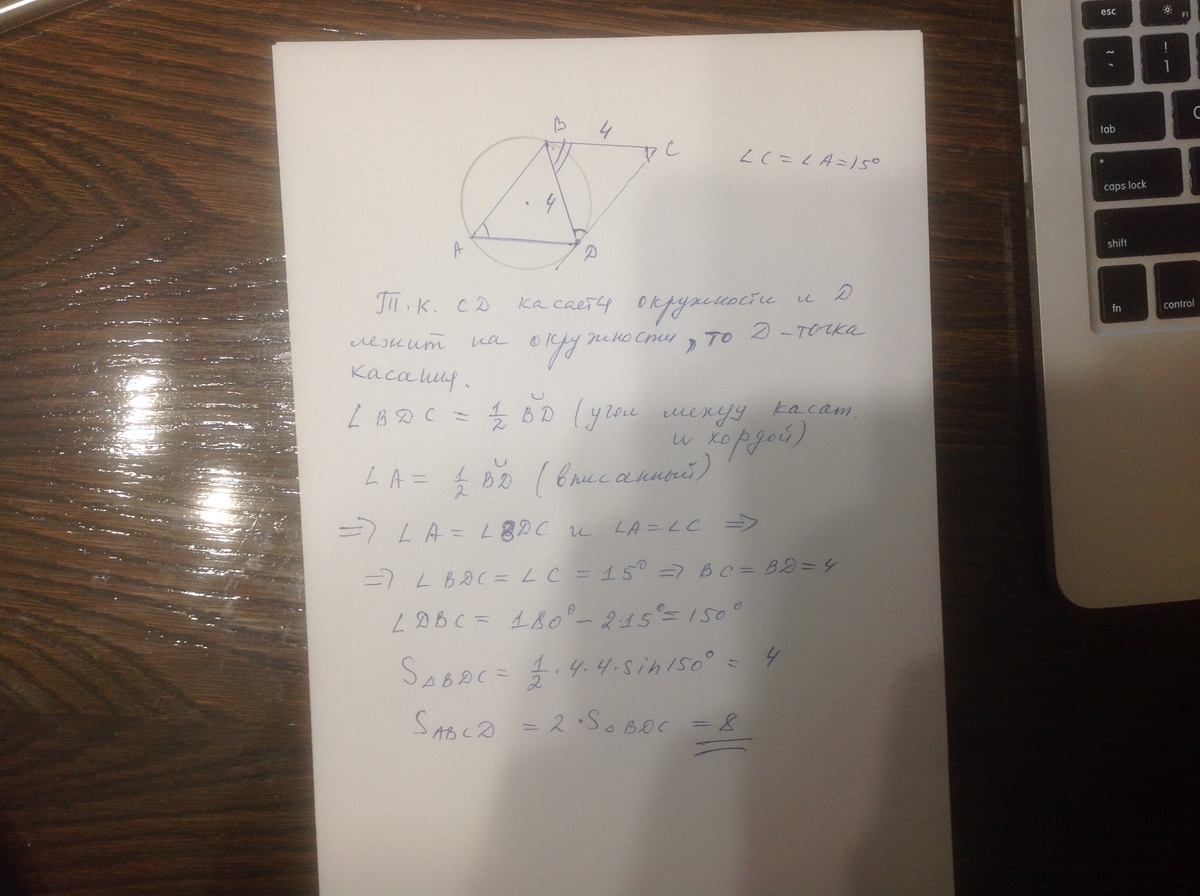 B 4 C ∠C = ∠A = 15°
4
A D
Т.к. CD касается окружности и D
лежит на окружности, то D - точка
касания.
∠BDC = 1/2 ᴗBD (угол между касат.
и хордой)
∠A = 1/2 ᴗBD (вписанный)
=> ∠A = ∠BDC и ∠A = ∠C =>
=> ∠BDC = ∠C = 15° => BC = BD = 4
∠DBC = 180° - 2·15° = 150°
S△BDC = 1/2 · 4 · 4 · sin150° = 4
SABCD = 2 · S△BDC = 8
esc F1
~ ` ! 1
tab
caps lock
shift
fn control